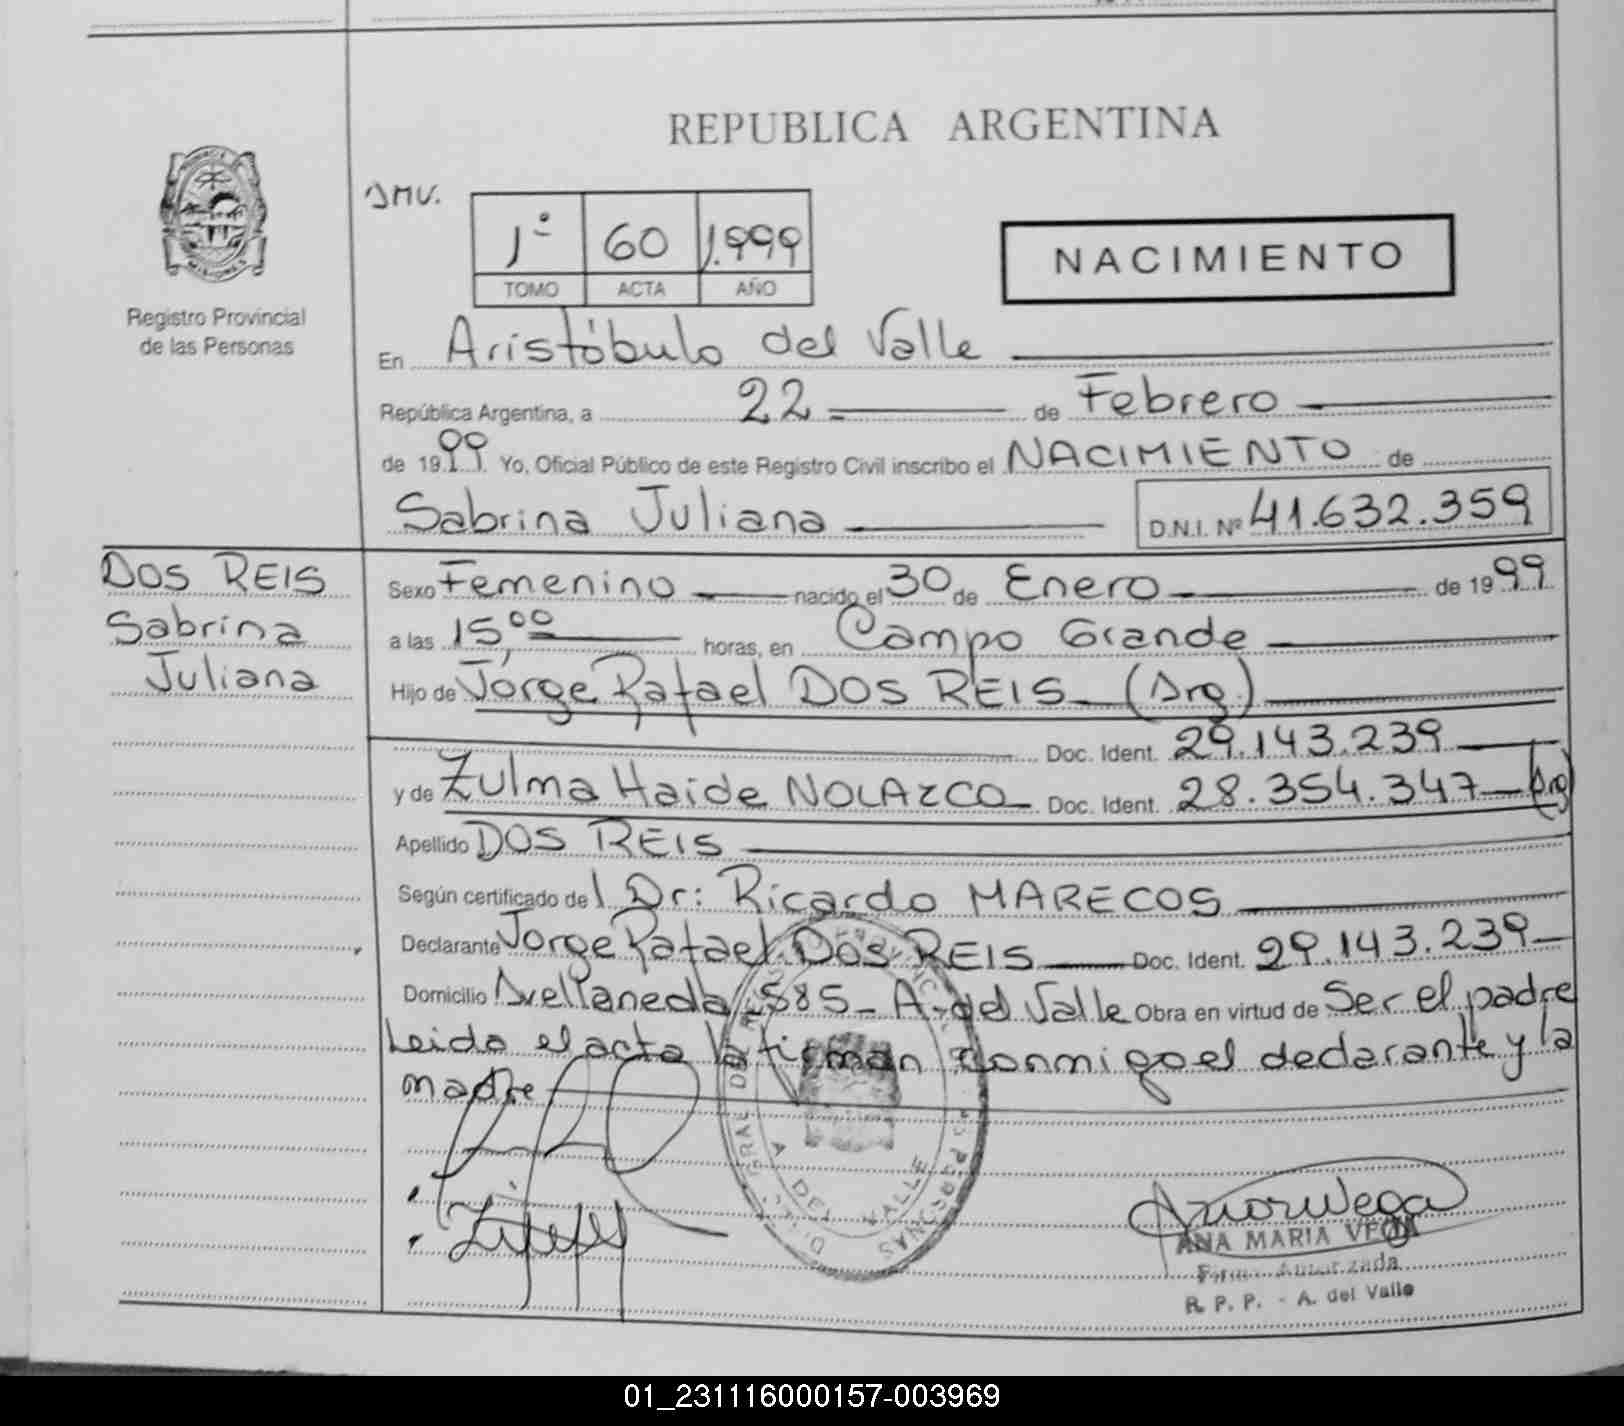 REPUBLICA ARGENTINA
JMV.
1º 60 1.999
TOMO ACTA AÑO
NACIMIENTO
MISIONES
Registro Provincial
de las Personas
En Aristóbulo del Valle
República Argentina, a 22 de Febrero
de 1999. Yo, Oficial Público de este Registro Civil inscribo el NACIMIENTO de
Sabrina Juliana D.N.I. Nº 41.632.359
DOS REIS
Sabrina
Juliana
Sexo Femenino nacido el 30 de Enero de 1999
a las 15,00 horas, en Campo Grande
Hijo de Jorge Rafael DOS REIS (Arg.)
Doc. Ident. 29.143.239
y de Zulma Haide NOLAZCO Doc. Ident. 28.354.347 (Arg)
Apellido DOS REIS
Según certificado del Dr: Ricardo MARECOS
Declarante Jorge Rafael DOS REIS Doc. Ident. 29.143.239
Domicilio Avellaneda 585 - A. del Valle Obra en virtud de Ser el padre
Leida el acta la firman conmigo el declarante y la
madre
A DEL VALLE
ANA MARIA VEGA
Firma Autorizada
R. P. P. - A. del Valle
01_231116000157-003969